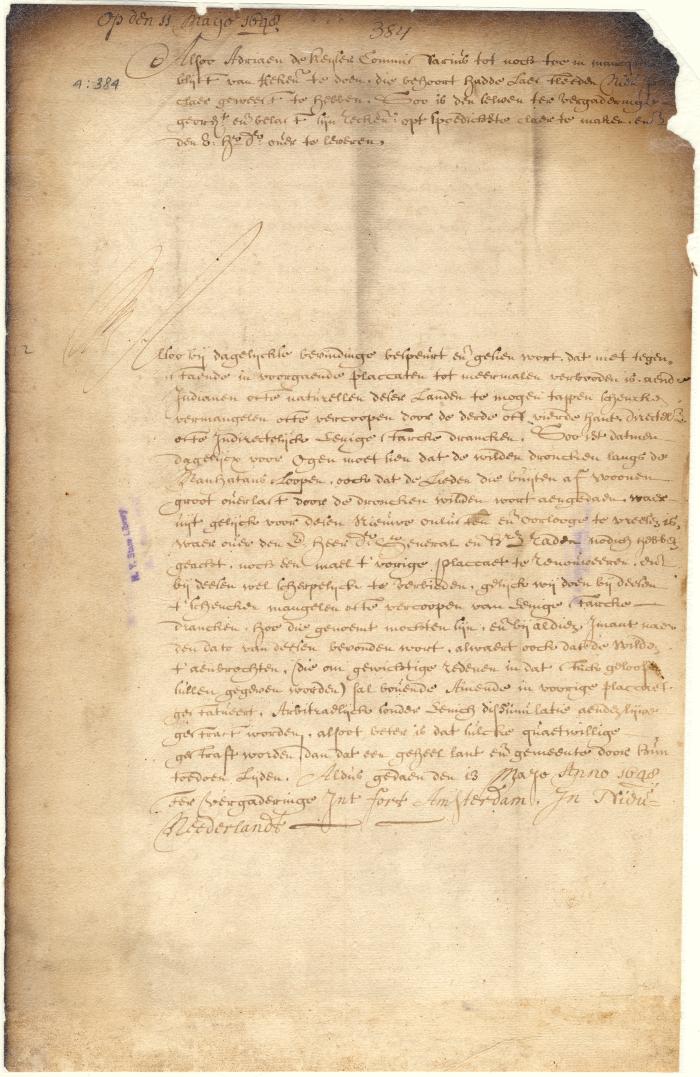 Op den 11 Mayo 1648
384
4: 384
Alsoo Adriaen de Keyser Commissarius tot noch toe in
blijft van Reken? te doen, die behoort hadde Laes tleeden
claer geweest te hebben. Soo is den selven ter vergaderinge
georde? en belast sijn recken? opt spoedichste claer te maken, en
den E: Hr Dr over te leveren,
2
Alsoo bij dagelijckse bevindinge bespeurt en gesien wort, dat niet tegen,
staende in voorgaende placcaten tot meermalen verbooden is, aende
Indianen ofte naturellen deser Landen te mogen tappen schencken
vermangelen ofte vercoopen door de derde off vierde hant, directel:
ofte Indirectelijck Eenige stercke drancken. Soo ist datmen
dagelijcx voor Ogen moet sien dat de wilden droncken langs de
Manhatans Loopen, oock dat de Lieden die buijten af woonen
groot overlast door de droncken wilden wort aengedaen, waer
uijt gelijck voor desen Nieuwe onlusten en oorloge te vreesen is,
waer over den E. Heer Dr. General en Hrn Raden nodich hebben
geacht, noch een mael t' vorige placcaet te renoveeren, en
bij deesen wel scherpelijck te verbieden, gelijck wij doen bij deesen
t' schencken mangelen ofte vercoopen van Eenige stercke
drancken, hoe die genoemt mochten sijn, en bij aldien Imant naer
den dato van deesen bevonden wort, alwaert oock dat de Wilden
t' aenbrochten, (die om gewichtige redenen in dat stuck geloof
sullen gegeven worden) sal bovende Amende in vorige placcaet
gestatueert, Arbitraelijck sonder Eenich dissimulatie aenden lijve
gestraft worden, alsoot beter is dat sulcke quaetwillige
gestraft worden, dan dat een geheel lant en gemeente door hun
toedoen Lijden. Aldus gedaen den 13 Mayo Anno 1648
Ter vergaderinge Int fort Amsterdam, In Nieu-
Neederlandt
N. Y. State Library